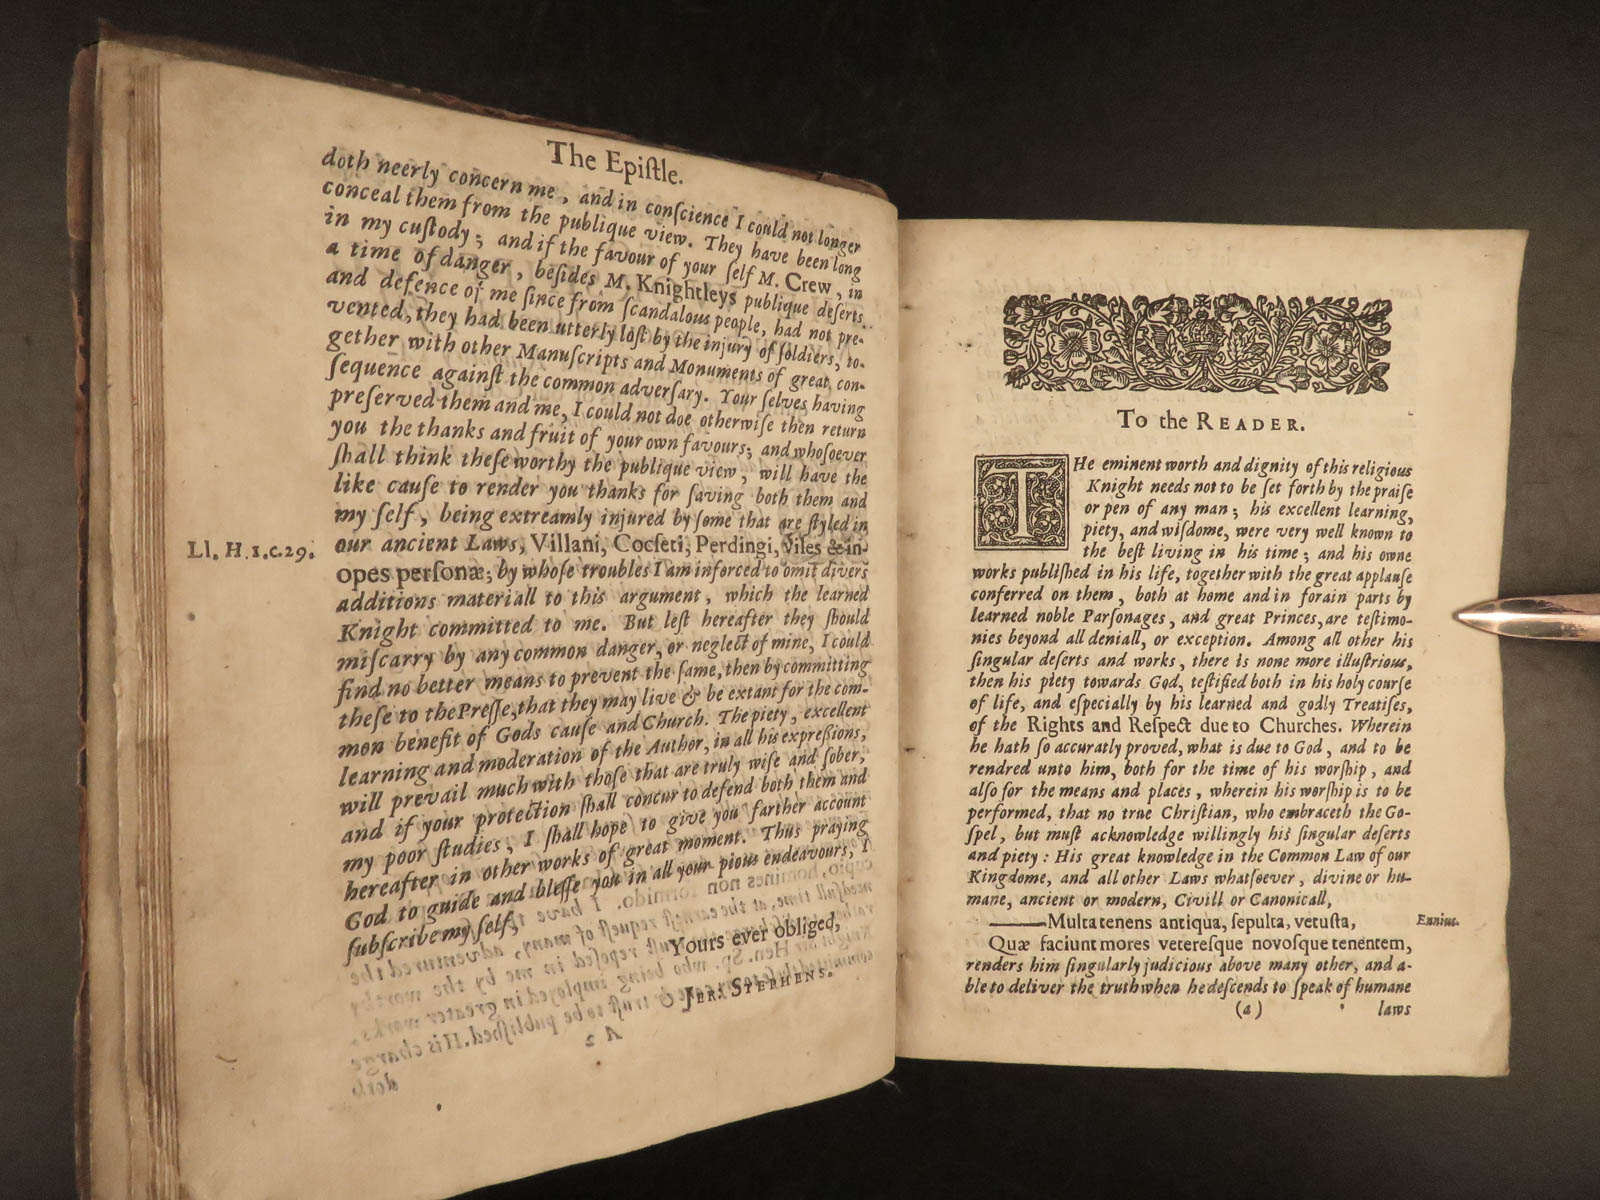 The Epiſtle.
doth neerly concern me, and in conſcience I could not longer
conceal them from the publique view. They have been long
in my cuſtody; and if the favour of your ſelf M. Crew, in
a time of danger, beſides M. Knightleys publique deſerts
and defence of me ſince from ſcandalous people, had not pre-
vented, they had been utterly loſt by the injury of ſoldiers, to-
gether with other Manuſcripts and Monuments of great con-
ſequence againſt the common adverſary. Your ſelves having
preſerved them and me, I could not doe otherwiſe then return
you the thanks and fruit of your own favours; and whoſoever
ſhall think theſe worthy the publique view, will have the
like cauſe to render you thanks for ſaving both them and
my ſelf, being extreamly injured by ſome that are ſtyled in
Ll. H. 1. c. 29. our ancient Laws, Villani, Cocſeti, Perdingi, viles & in-
opes perſonæ; by whoſe troubles I am inforced to omit divers
additions materiall to this argument, which the learned
Knight committed to me. But leſt hereafter they ſhould
miſcarry by any common danger, or neglect of mine, I could
find no better means to prevent the ſame, then by committing
theſe to the Preſſe, that they may live & be extant for the com-
mon benefit of Gods cauſe and Church. The piety, excellent
learning and moderation of the Author, in all his expreßions,
will prevail much with thoſe that are truly wiſe and ſober,
and if your protection ſhall concur to defend both them and
my poor ſtudies, I ſhall hope to give you farther account
hereafter in other works of great moment. Thus praying
God to guide and bleſſe you in all your pious endeavours, I
ſubſcribe my ſelf,
Yours ever obliged,
JER. STEPHENS.
To the READER.
THe eminent worth and dignity of this religious
Knight needs not to be ſet forth by the praiſe
or pen of any man; his excellent learning,
piety, and wiſdome, were very well known to
the beſt living in his time; and his owne
works publiſhed in his life, together with the great applauſe
conferred on them, both at home and in forain parts by
learned noble Parſonages, and great Princes, are teſtimo-
nies beyond all deniall, or exception. Among all other his
ſingular deſerts and works, there is none more illuſtrious,
then his piety towards God, teſtified both in his holy courſe
of life, and eſpecially by his learned and godly Treatiſes,
of the Rights and Reſpect due to Churches. Wherein
he hath ſo accuratly proved, what is due to God, and to be
rendred unto him, both for the time of his worſhip, and
alſo for the means and places, wherein his worſhip is to be
performed, that no true Chriſtian, who embraceth the Go-
ſpel, but muſt acknowledge willingly his ſingular deſerts
and piety: His great knowledge in the Common Law of our
Kingdome, and all other Laws whatſoever, divine or hu-
mane, ancient or modern, Civill or Canonicall,
——Multa tenens antiqua, ſepulta, vetuſta, Ennius.
Quæ faciunt mores vetereſque novoſque tenentem,
renders him ſingularly judicious above many other, and a-
ble to deliver the truth when he deſcends to ſpeak of humane
(a) laws